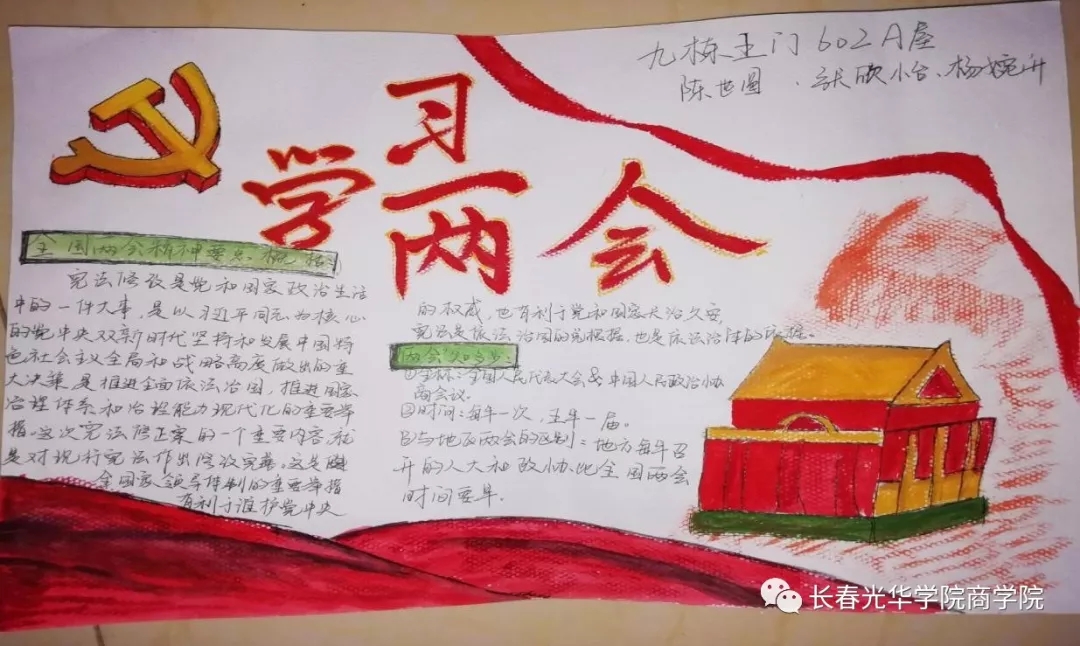 九栋王门602A屋
陈世圆、张欣小台、杨婉卉
学习
两会
全国两会精神要点概括
宪法修改是党和国家政治生活
中的一件大事，是以习近平同志为核心
的党中央双新时代坚持和发展中国特
色社会主义全局和战略高度做出的重
大决策是推进全面依法治国，推进国家
治理体系和治理能力现代化的重要举
措。这次宪法修正案的一个重要内容，就
是对现行宪法作出修改完善。这是健
全国家领导体制的重要举措
有利于维护党中央
的权威，也有利于党和国家长治久安
宪法是依法治国的宪根据，也是依法治体的依据。
两会知多少
①全称：全国人民代表大会&中国人民政治协
商会议.
②时间：每年一次，五年一届。
③与地区两会的区别：地方每年召
开的人大和政协比全国两会
时间要早.
长春光华学院商学院